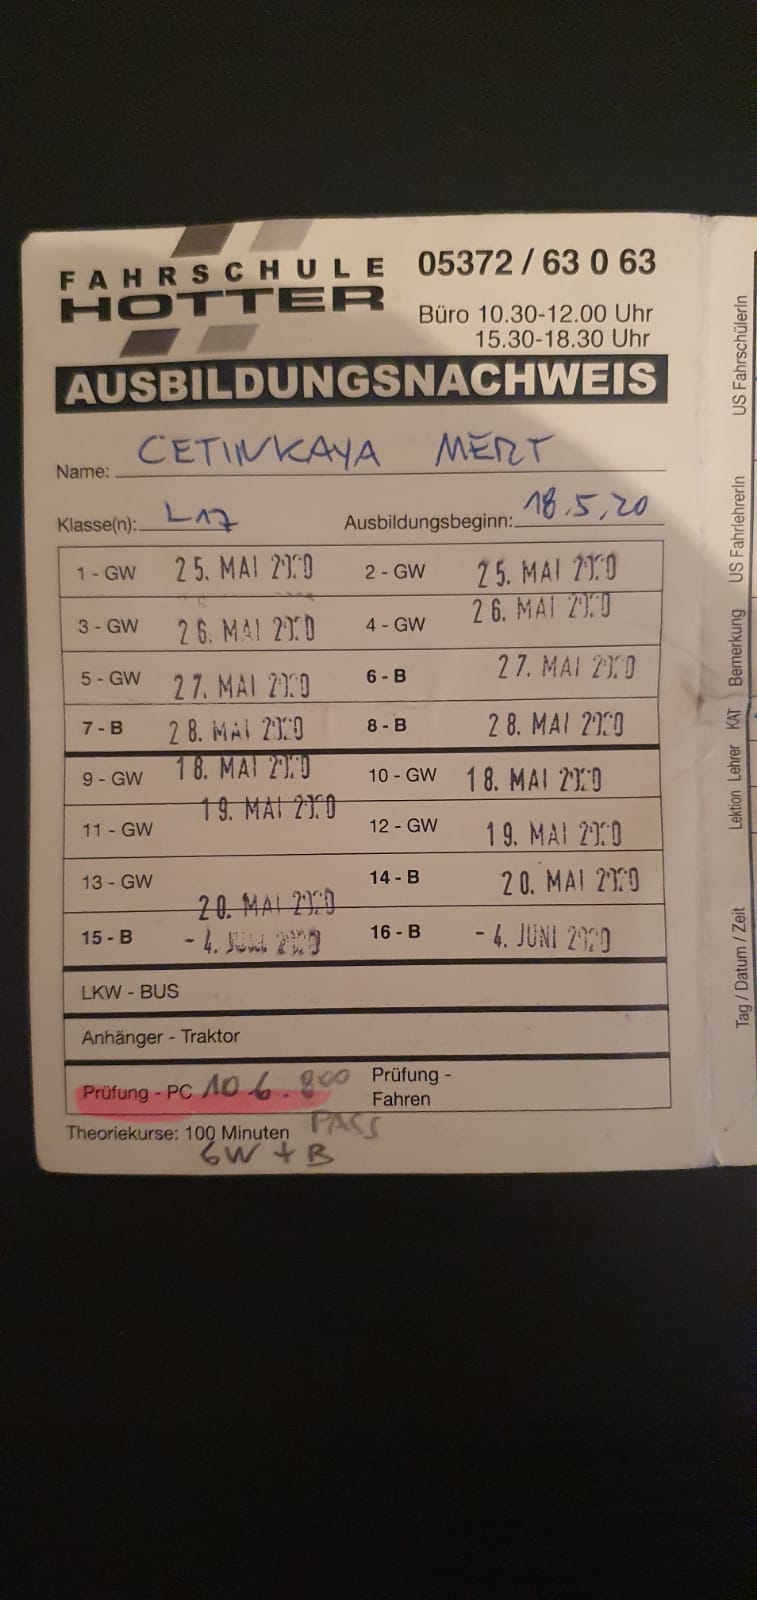 FAHRSCHULE 05372 / 63 0 63
HOTTER
Büro 10.30-12.00 Uhr
15.30-18.30 Uhr
AUSBILDUNGSNACHWEIS
Name: CETINKAYA MERT
Klasse(n): L17 Ausbildungsbeginn: 18.5.20
1 - GW 25. MAI 2020 2 - GW 25. MAI 2020
3 - GW 26. MAI 2020 4 - GW 26. MAI 2020
5 - GW 27. MAI 2020 6 - B 27. MAI 2020
7 - B 28. MAI 2020 8 - B 28. MAI 2020
9 - GW 18. MAI 2020 10 - GW 18. MAI 2020
11 - GW 19. MAI 2020 12 - GW 19. MAI 2020
13 - GW 20. MAI 2020 14 - B 20. MAI 2020
15 - B - 4. JUNI 2020 16 - B - 4. JUNI 2020
LKW - BUS
Anhänger - Traktor
Prüfung - PC 10 6. 800 Prüfung -
Fahren
Theoriekurse: 100 Minuten PASS
GW + B
Tag / Datum / Zeit Lektion Lehrer KAT Bemerkung US FahrlehrerIn US FahrschülerIn